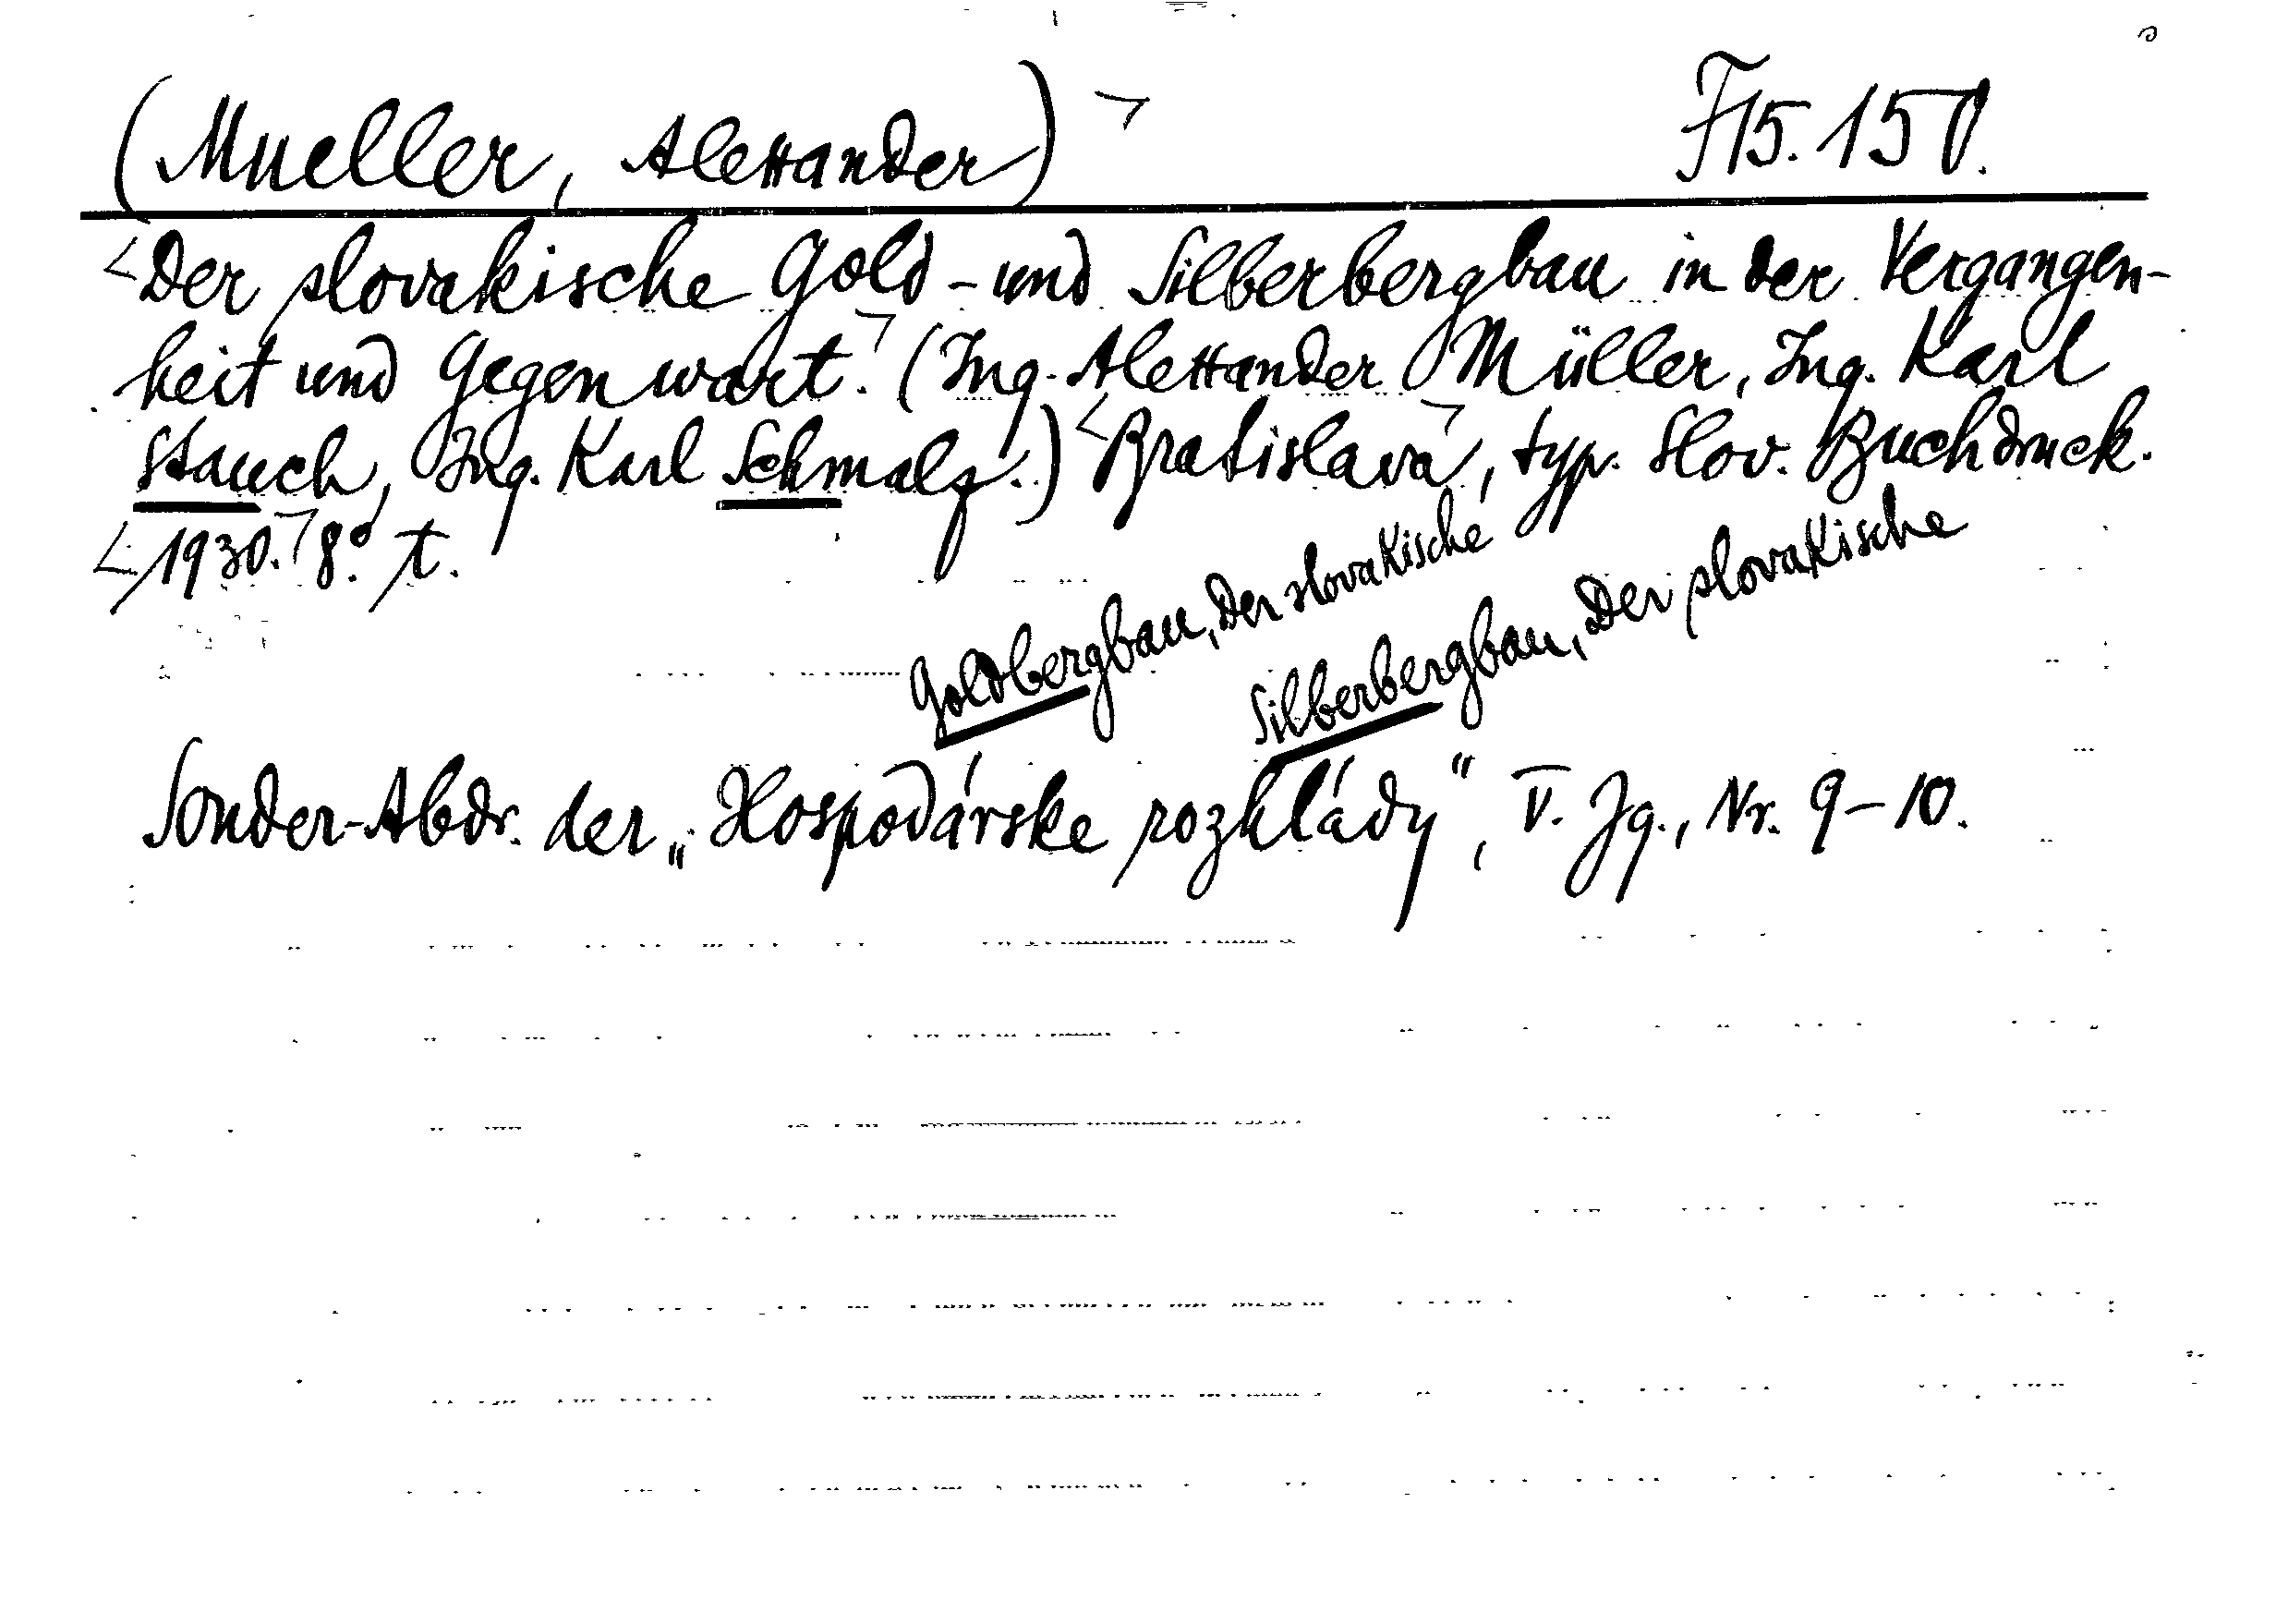 (Mueller, Alexander) F 15.150.
Der slovakische Gold- und Silberbergbau in der Vergangen-
heit und Gegenwart. (Ing. Alexander Müller, Ing. Karl
Stauch, Ing. Karl Schmalz.) Bratislava, typ. Slov. Buchdruck.
1930. 8°. t.
Goldbergbau, Der slovakische
Silberbergbau, Der slovakische
Sonder-Abdr. der „Hospodárske rozhlády“, V. Jg., Nr. 9-10.